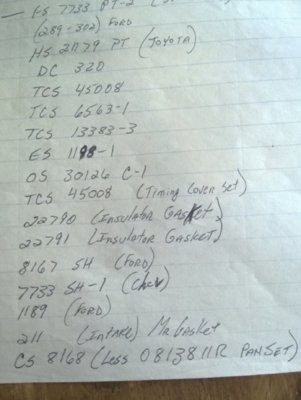 — FS 7733 PT-2
(289-302) FORD
HS 21179 PT (TOYOTA)
DC 320
TCS 45008
TCS 6563-1
TCS 13383-3
ES 1198-1
OS 30126 C-1
TCS 45008 (Timing Cover Set)
22790 (INSULATOR GASKET)
22791 (INSULATOR GASKET)
8167 SH (FORD)
7733 SH-1 (Chev)
1189 (FORD)
211 (INTAKE) Mr Gasket
CS 8168 (Less 0813811R PAN SET)